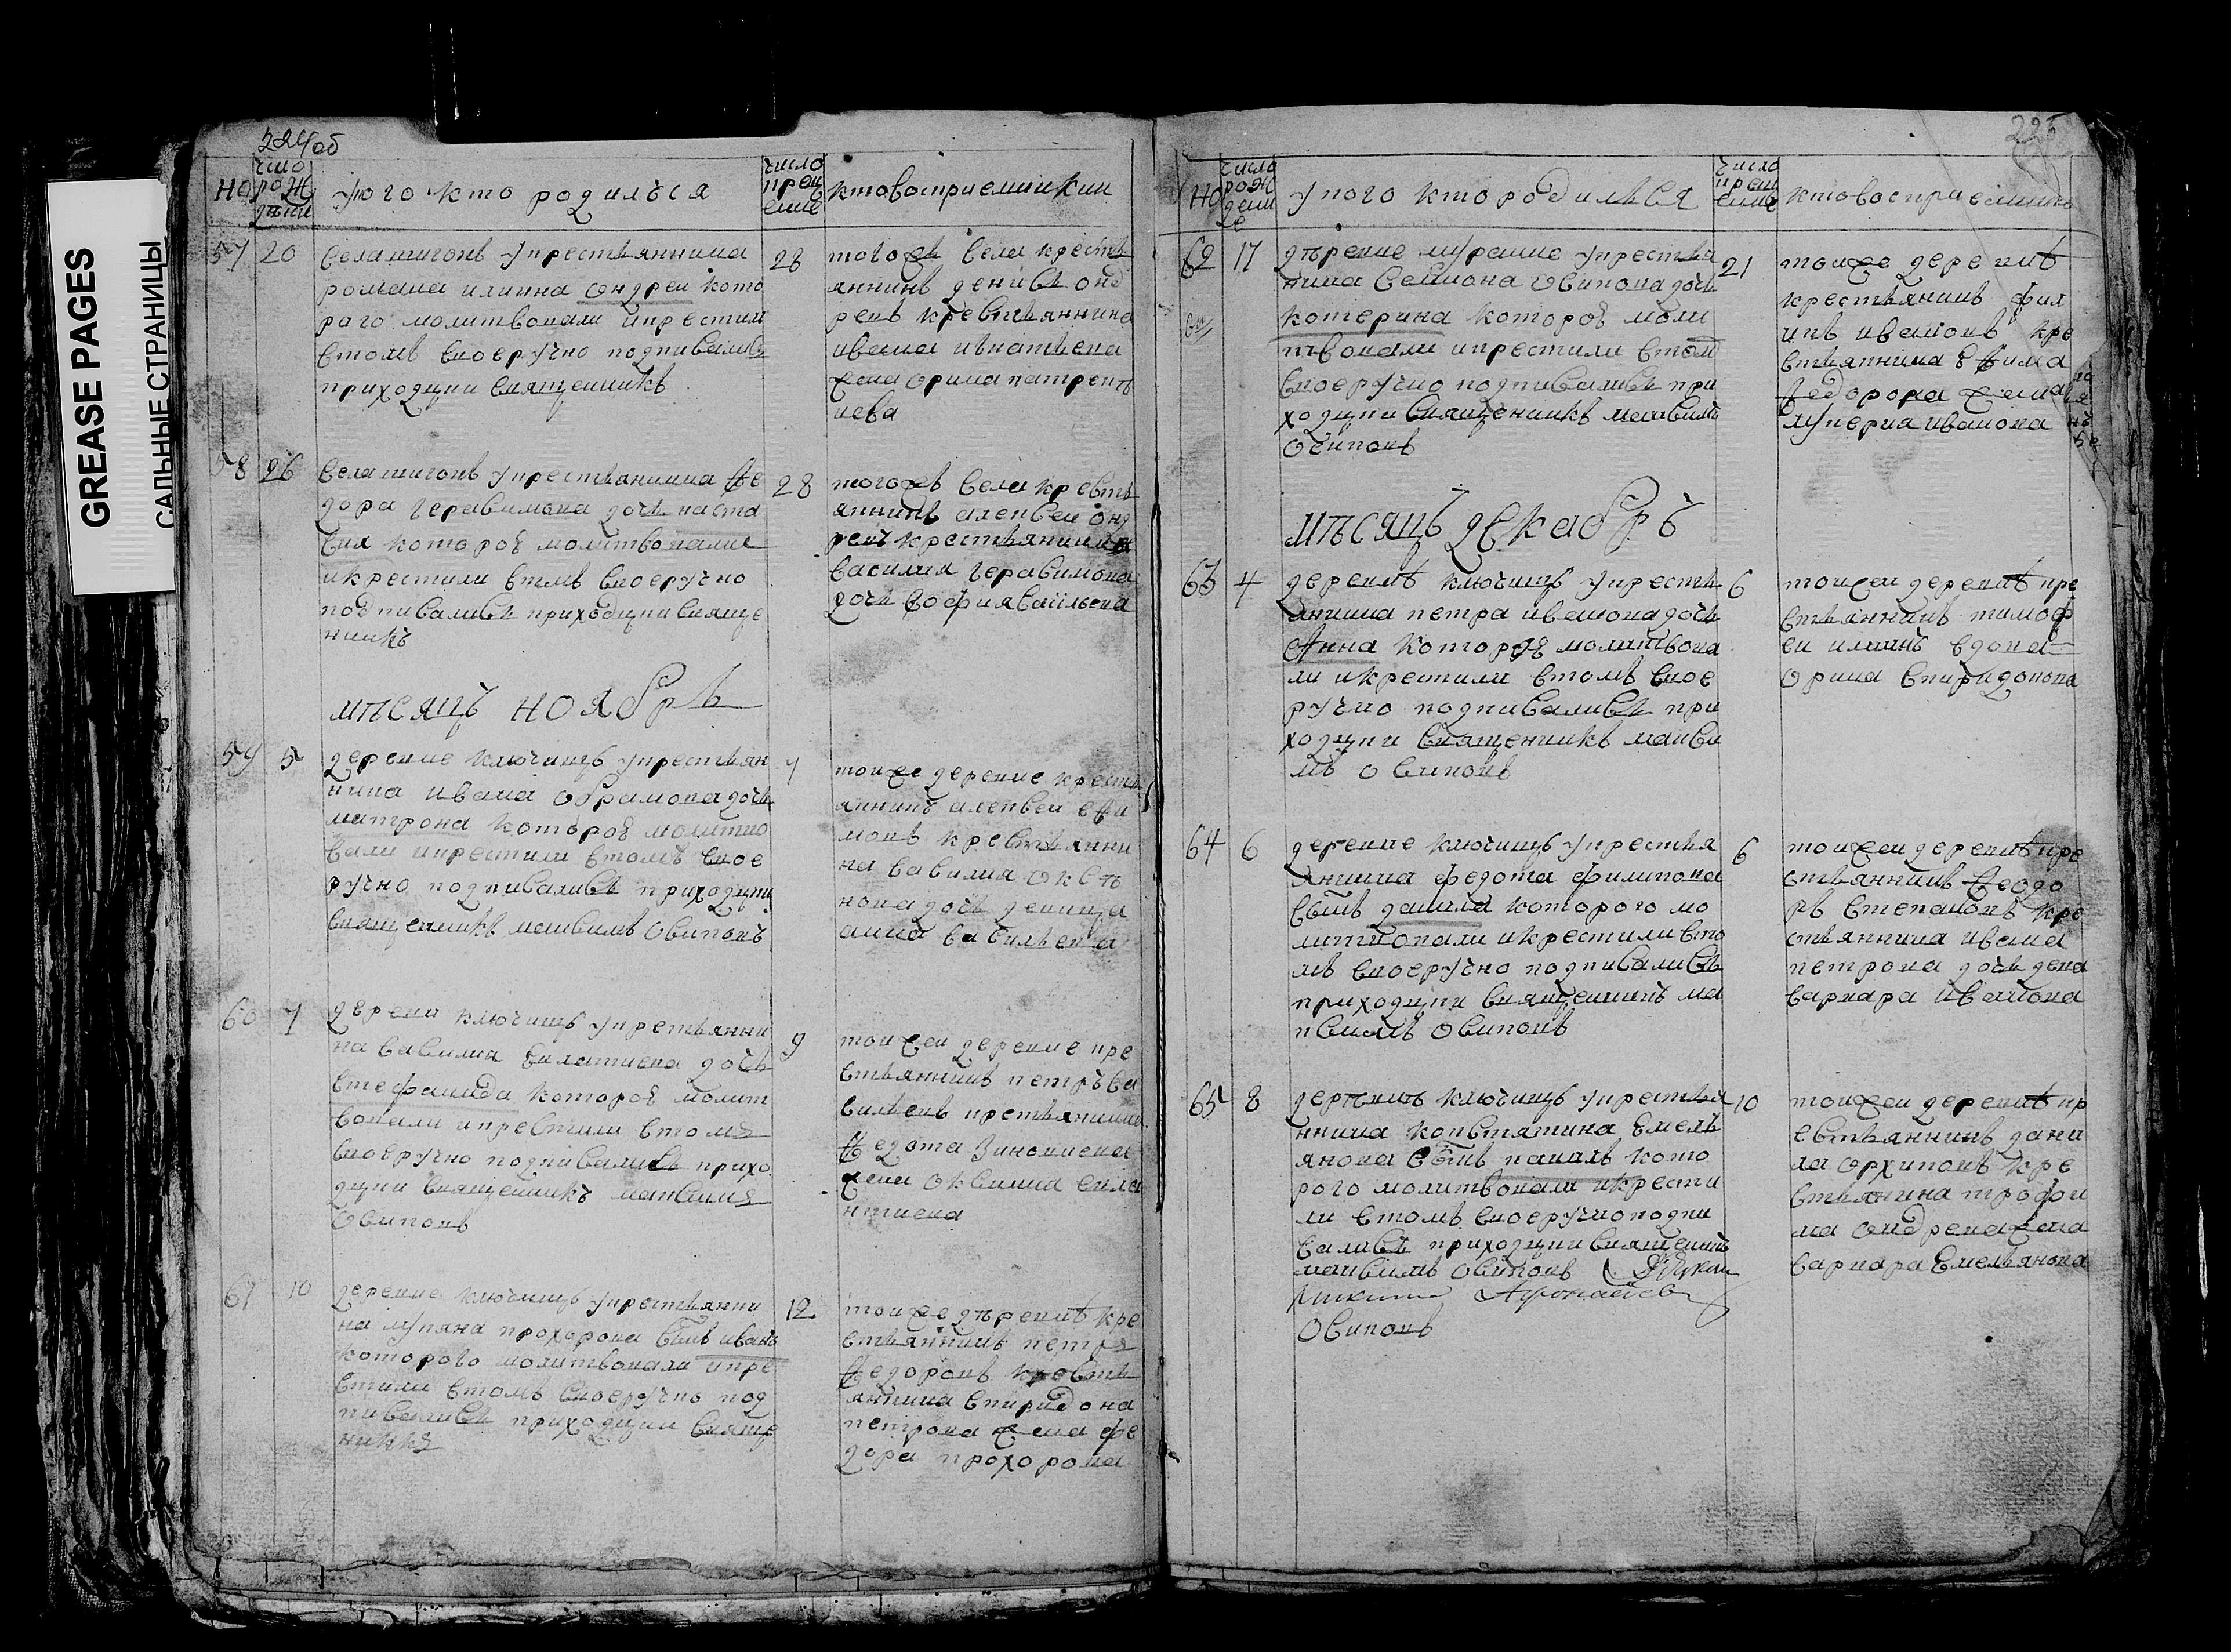 GREASE PAGES
САЛЬНЫЕ СТРАНИЦЫ
224об
но
число рождени
у кого кто родилъся
число крещение
кто восприемникии
57 20
села шигонъ у крестьяннина
романа илиина ондреи кото
раго молитвовали и крестили
втомъ своеручно подписалисъ
приходцкии священникъ
28
тогожъ села кресть
яннинъ денисъ онд
реевъ крестьяннина
ивана игнатьева
жена орина
58 26
села шигонъ у крестьяннина фе
дора герасимова дочь наста
сия которую молитвовалии
и крестили втомъ своеручно
подписалисъ приходцкии свяще
нникъ
28
тогожъ села кресть
яннинъ алексеи онд
реевъ крестьяннина
василия герасимова
дочь софия васильева
мѣсяцъ ноябрь
59 5
деревне ключищъ у крестьян
нина ивана обрамова дочь
матрона которую молитво
вали и крестили втомъ свое
ручно подписалисъ приходцки
священникъ максимъ осиповъ
7
тоиже деревне кресть
яннинъ алексеи ефи
мовъ крестьянни
на василия оксѣ
нова дочь девица
анна васильева
60 7
деревни ключищъ у крестьянни
на василия силантиева дочь
стефанида которую молит
вовали и крестили втомъ
своеручно подписалисъ прихо
дцки священникъ максимъ
осиповъ
9
тоижеи деревне кре
стьяннинъ петръ ва
сильевъ крестьяннина
федота зиновиева
жена оксинна сила
нтиева
61 10
деревне ключищъ у крестьянни
на лукяна прохорова сынъ иванъ
которого молитвовали и кре
стили втомъ своеручно под
писалисъ приходцкии свяще
нникъ
12
тоиже дѣревнѣ кре
стьяннинъ петръ
федоровъ кресть
яннина спиридона
петрова жена фе
дора прохорова
225
но
число рождении
у кого кто родилъся
число крещение
кто восприемники
62 17
дѣревне муранне у крестья
нина семиона осипова дочь
котерина которую моли
твовали и крестили втом
своеручно подписалисъ при
ходцки священникъ максимъ
осиповъ
21
тоиже деревнѣ
крестьяннинъ фил
ипъ ивановъ кре
стьяннина
федорова жена
лукерия иванова
мѣсяцъ декабрь
63 4
деревнѣ ключищъ у кресть
яннина петра иванова дочь
анна которую молитвова
ли и крестили втомъ свое
ручно подписалисъ при
ходцки священникъ макси
мъ осиповъ
6
тоижеи деревнѣ кре
стьяннинъ тимоф
еи илиинъ вдова
орина спиридонова
64 6
деревне ключищъ у крестья
яннина федота филипова
сынъ данила которого мо
литвовали и крестили вто
мъ своеручно подписалисъ
приходцки священникъ ма
ксимъ осиповъ
6
тоижеи деревнѣ кре
стьяннинъ феодо
ръ степановъ кре
стьяннина ивана
петрова дочь дева
варвара иванова
65 8
дерѣвнѣ ключищъ у крестья
ннина костянтина емель
янова сынъ павилъ кото
рого молитвовали и крести
ли втомъ своеручно подпи
салисъ приходцки священникъ
максимъ осиповъ
осиповъ
10
тоижеи деревнѣ кр
естьяннинъ дани
ла орхиповъ кре
стьянина трофи
ма ондреева жена
варвара емельянова